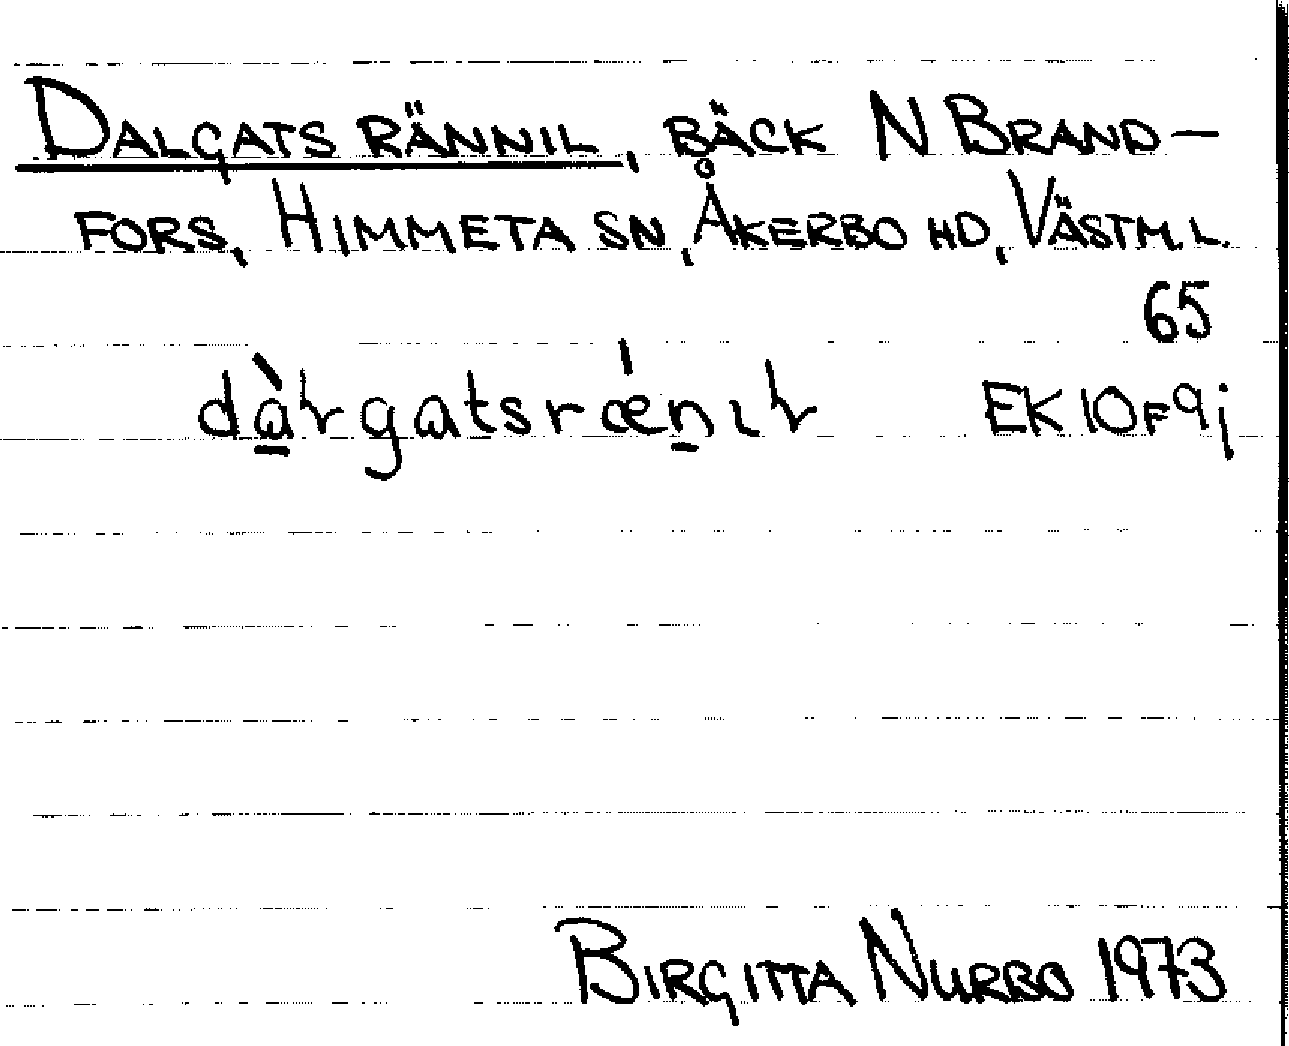 DALGATS RÄNNIL, BÄCK N BRAND-
FORS, HIMMETA SN, ÅKERBO HD, VÄSTM. L.
65
EK 10F9j
BIRGITTA NURBO 1973